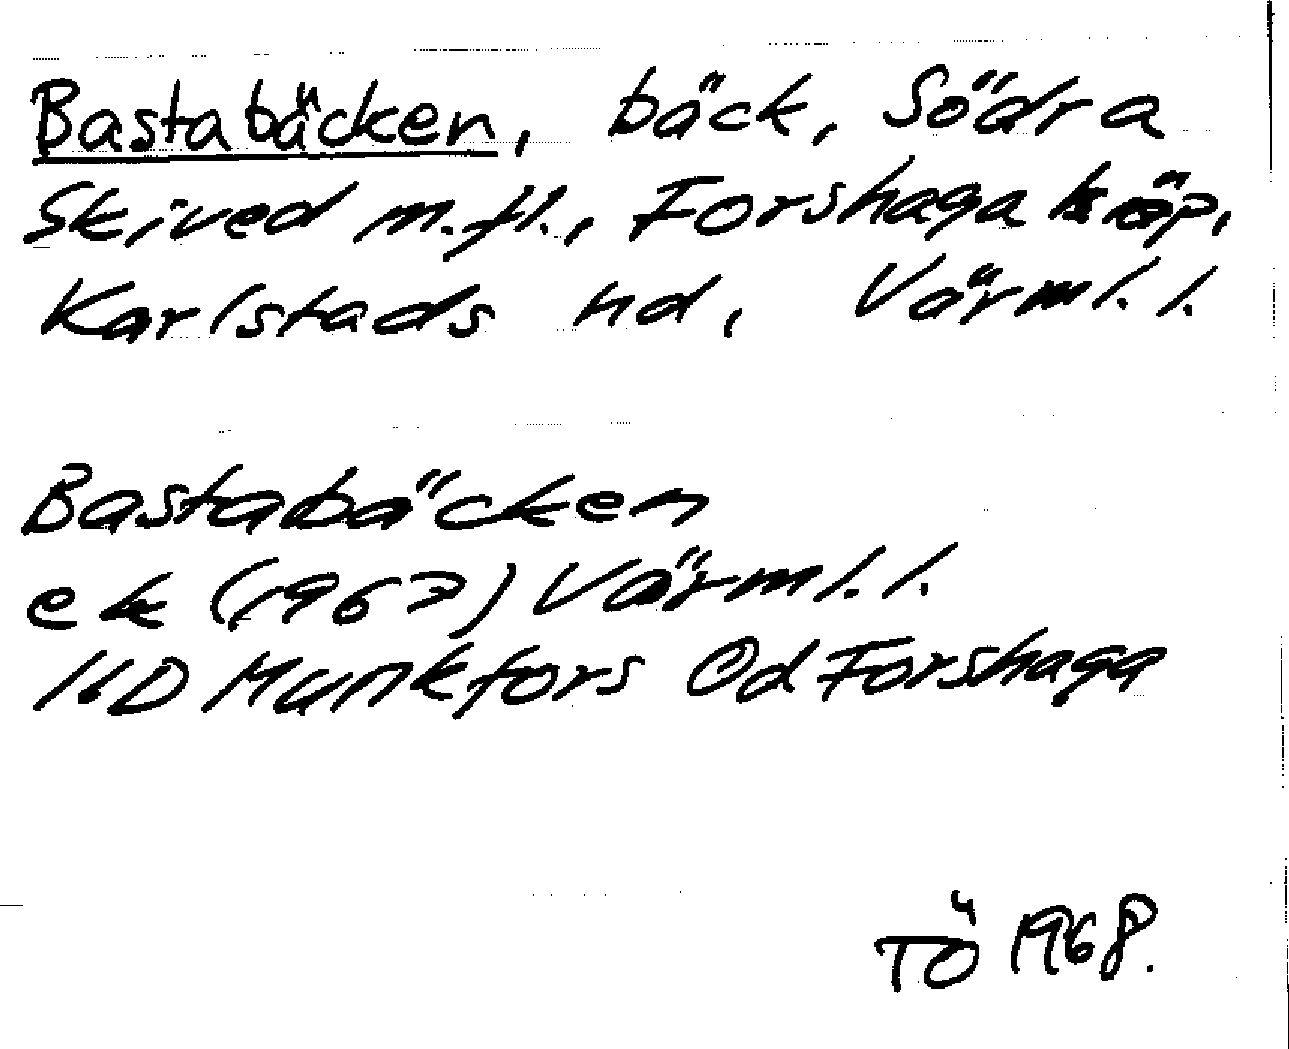 Bastabäcken, bäck, Södra
Skived m.fl., Forshaga köp,
Karlstads hd, Värml.l.
Bastabäcken
ek (1967) Värml.l.
11D Munkfors Öd Forshaga
TÖ 1968.